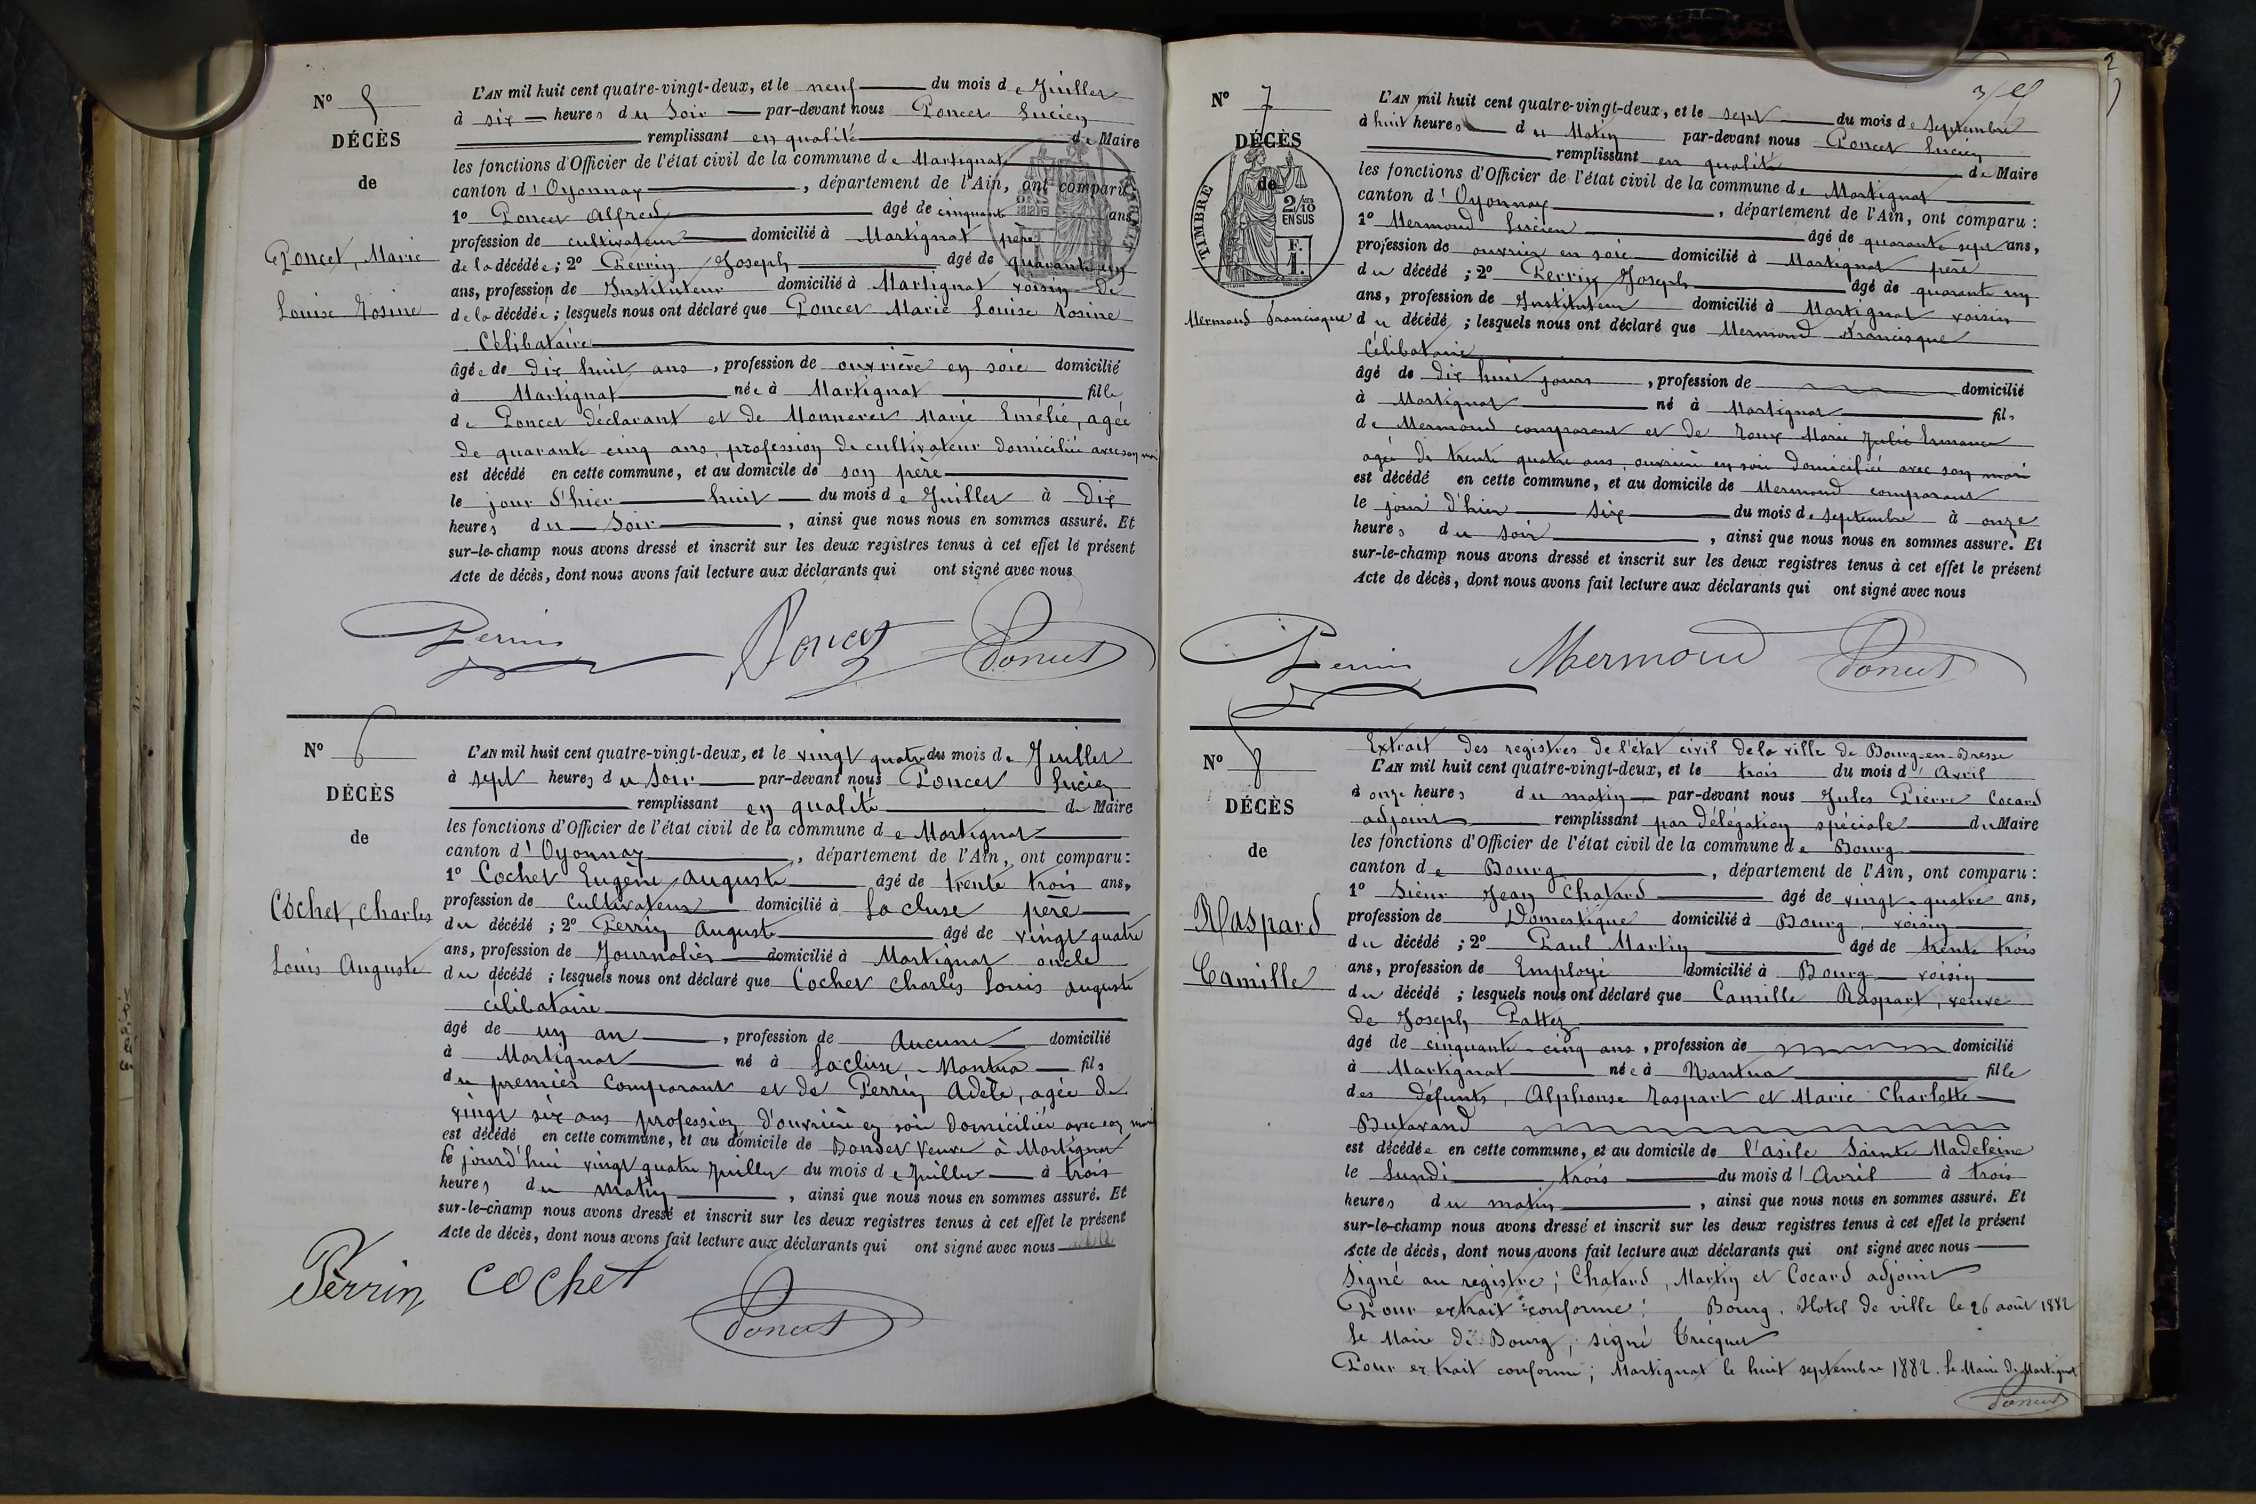 N° 5
DÉCÈS
de
Poncet, Marie
Louise Rosine
L'AN mil huit cent quatre-vingt-deux, et le neuf du mois de Juillet
à six heures du Soir par-devant nous Poncet Lucien
remplissant en qualité de Maire
les fonctions d'Officier de l'état civil de la commune de Martignat
canton d'Oyonnax, département de l'Ain, ont comparu
1° Poncet Alfred âgé de cinquante ans
profession de cultivateur domicilié à Martignat père
de la décédée; 2° Perrin Joseph âgé de quarante un
ans, profession de Instituteur domicilié à Martignat voisin de
de la décédée; lesquels nous ont déclaré que Poncet Marie Louise Rosine
Célibataire
âgée de dix huit ans, profession de ouvrière en soie domicilié
à Martignat née à Martignat fille
de Poncet déclarant et de Monneret Marie Emélie, agée
de quarante cinq ans, profession de cultivateur domiciliée avec son mari
est décédé en cette commune, et au domicile de son père
le jour d'hier huit du mois de Juillet à Dix
heures du Soir, ainsi que nous nous en sommes assuré. Et
sur-le-champ nous avons dressé et inscrit sur les deux registres tenus à cet effet le présent
Acte de décès, dont nous avons fait lecture aux déclarants qui ont signé avec nous
Perrin Poncet Poncet
N° 6
DÉCÈS
de
Cochet, Charles
Louis Auguste
L'AN mil huit cent quatre-vingt-deux, et le vingt quatre du mois de Juillet
à sept heures du soir par-devant nous Poncet Lucien
remplissant en qualité de Maire
les fonctions d'Officier de l'état civil de la commune de Martignat
canton d'Oyonnax, département de l'Ain, ont comparu:
1° Cochet Eugène Auguste âgé de trente trois ans,
profession de Cultivateur domicilié à La cluse père
du décédé; 2° Perrin Auguste âgé de vingt quatre
ans, profession de Journalier domicilié à Martignat oncle
du décédé; lesquels nous ont déclaré que Cochet Charles Louis Auguste
célibataire
âgé de un an, profession de Aucune domicilié
à Martignat né à Lacluse - Nantua fils
du premier comparant et de Perrin Adèle, agée de
vingt six ans profession d'ouvrière en soie domiciliée avec son mari
est décédé en cette commune, et au domicile de veuve à Martignat
le jourd'hui vingt quatre juillet du mois de Juillet à trois
heures du matin, ainsi que nous nous en sommes assuré. Et
sur-le-champ nous avons dressé et inscrit sur les deux registres tenus à cet effet le présent
Acte de décès, dont nous avons fait lecture aux déclarants qui ont signé avec nous
Perrin Cochet
Poncet
2
N° 7
DÉCÈS
de
TIMBRE
2/10
EN SUS
F.
1.
Mermoud Francisque
L'AN mil huit cent quatre-vingt-deux, et le sept du mois de Septembre
à huit heures du Matin par-devant nous Poncet Lucien
remplissant en qualité de Maire
les fonctions d'Officier de l'état civil de la commune de Martignat
canton d'Oyonnax, département de l'Ain, ont comparu:
1° Mermoud Lucien âgé de quarante sept ans,
profession de ouvrier en soie domicilié à Martignat père
du décédé; 2° Perrin Joseph âgé de quarante un
ans, profession de Instituteur domicilié à Martignat voisin
du décédé; lesquels nous ont déclaré que Mermoud Francisque
Célibataire
âgé de dix huit jours, profession de domicilié
à Martignat né à Martignat fils
de Mermoud comparant et de Roux Marie Julie Ermance
agée de trente quatre ans, ouvrière en soie domiciliée avec son mari
est décédé en cette commune, et au domicile de Mermoud comparant
le jour d'hier six du mois de septembre à onze
heures du soir, ainsi que nous nous en sommes assuré. Et
sur-le-champ nous avons dressé et inscrit sur les deux registres tenus à cet effet le présent
Acte de décès, dont nous avons fait lecture aux déclarants qui ont signé avec nous
Perrin Mermoud Poncet
N° 8
DÉCÈS
de
Raspard
Camille
Extrait des registres de l'état civil de la ville de Bourg-en-Bresse
L'AN mil huit cent quatre-vingt-deux, et le trois du mois d'Avril
à onze heures du matin par-devant nous Jules Pierre Cocard
adjoint remplissant par délégation spéciale du Maire
les fonctions d'Officier de l'état civil de la commune de Bourg
canton de Bourg, département de l'Ain, ont comparu:
1° Sieur Jean Chatard âgé de vingt-quatre ans,
profession de Domestique domicilié à Bourg voisin
du décédé; 2° Paul Martin âgé de trente trois
ans, profession de Employé domicilié à Bourg voisin
du décédé; lesquels nous ont déclaré que Camille Raspart, veuve
de Joseph Pattez
âgé de cinquante-cinq ans, profession de domicilié
à Martignat née à Nantua fille
des défunts, Alphonse Raspart et Marie Charlotte
Butavand
est décédée en cette commune, et au domicile de l'asile Sainte Madeleine
le Lundi trois du mois d'Avril à trois
heures du matin, ainsi que nous nous en sommes assuré. Et
sur-le-champ nous avons dressé et inscrit sur les deux registres tenus à cet effet le présent
Acte de décès, dont nous avons fait lecture aux déclarants qui ont signé avec nous
Signé au registre; Chatard, Martin et Cocard adjoint
Pour extrait conforme: Bourg, Hotel de ville le 26 août 1882
Le Maire de Bourg, signé Tricquet
Pour extrait conforme; Martignat le huit septembre 1882. Le Maire de Martignat
Poncet